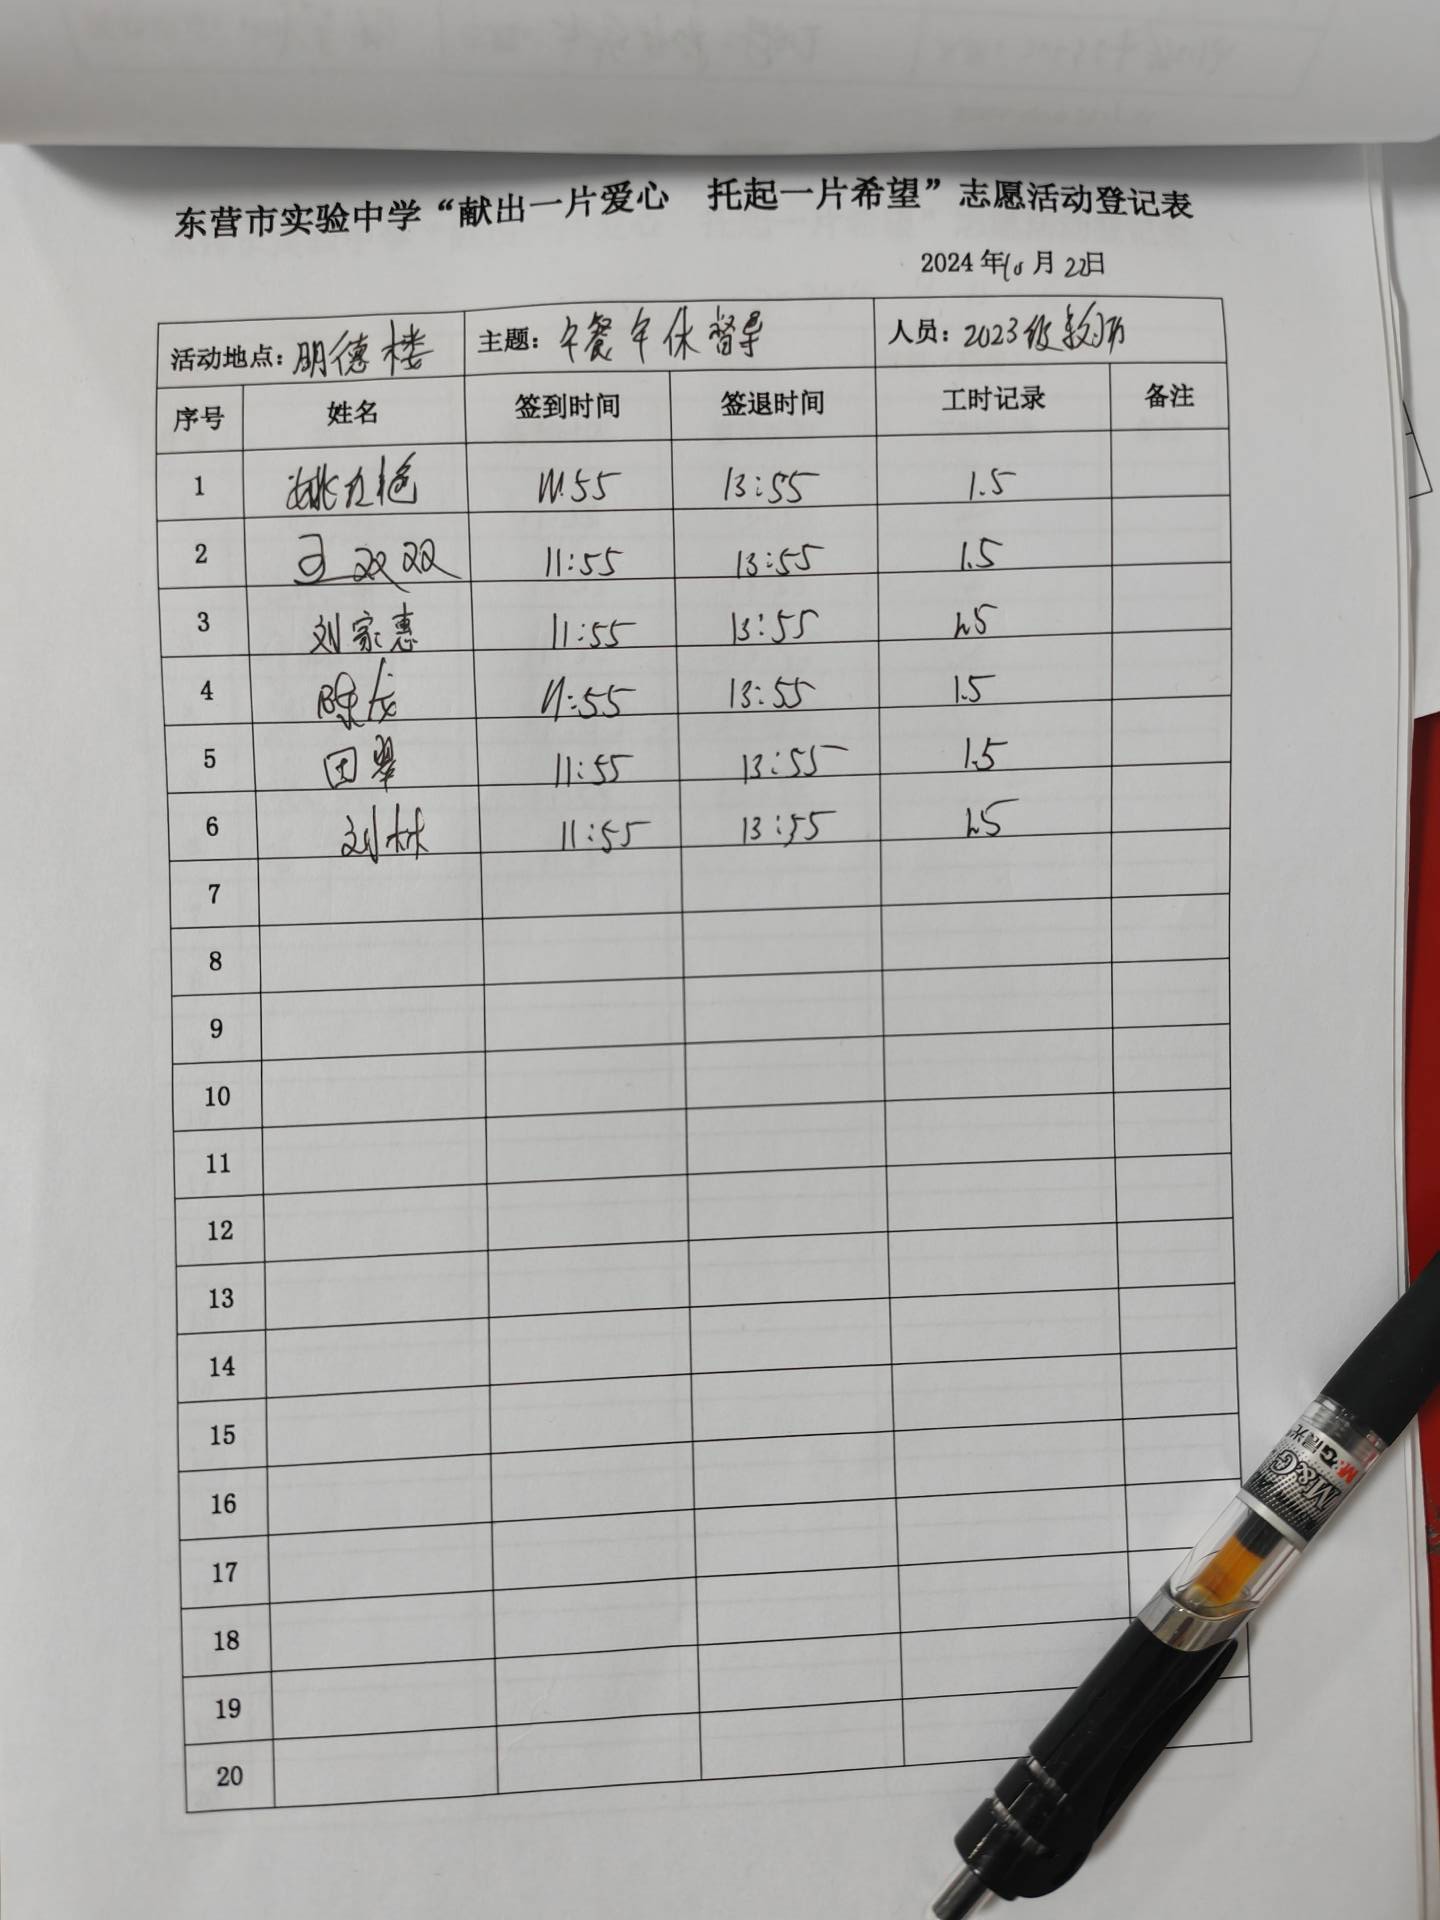 东营市实验中学“献出一片爱心 托起一片希望”志愿活动登记表
2024年10月22日
活动地点：明德楼 主题：午餐午休督导 人员：2023级教师
序号 姓名 签到时间 签退时间 工时记录 备注
1 姚红艳 11:55 13:55 1.5
2 王双双 11:55 13:55 1.5
3 刘家惠 11:55 13:55 1.5
4 陈龙 11:55 13:55 1.5
5 田翠 11:55 13:55 1.5
6 刘林 11:55 13:55 1.5
7
8
9
10
11
12
13
14
15
16
17
18
19
20
M&G晨光
M&G